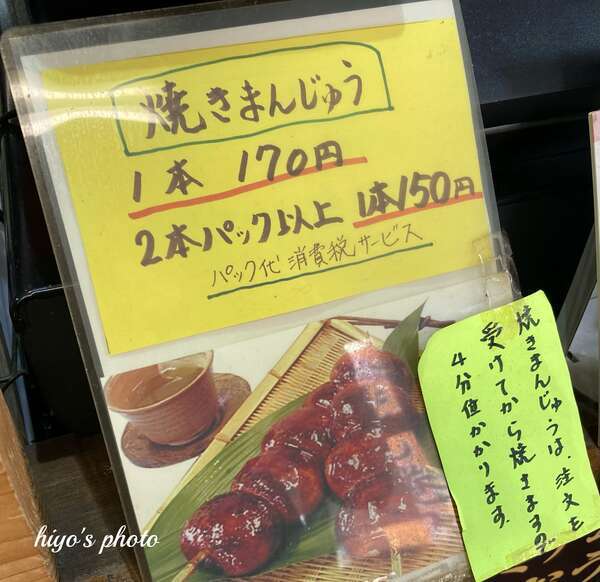 焼きまんじゅう
1本 170円
2本パック以上 1本150円
パック代 消費税サービス
焼きまんじゅうは、注文を
受けてから焼きますので
4分位かかります。
hiyo's photo